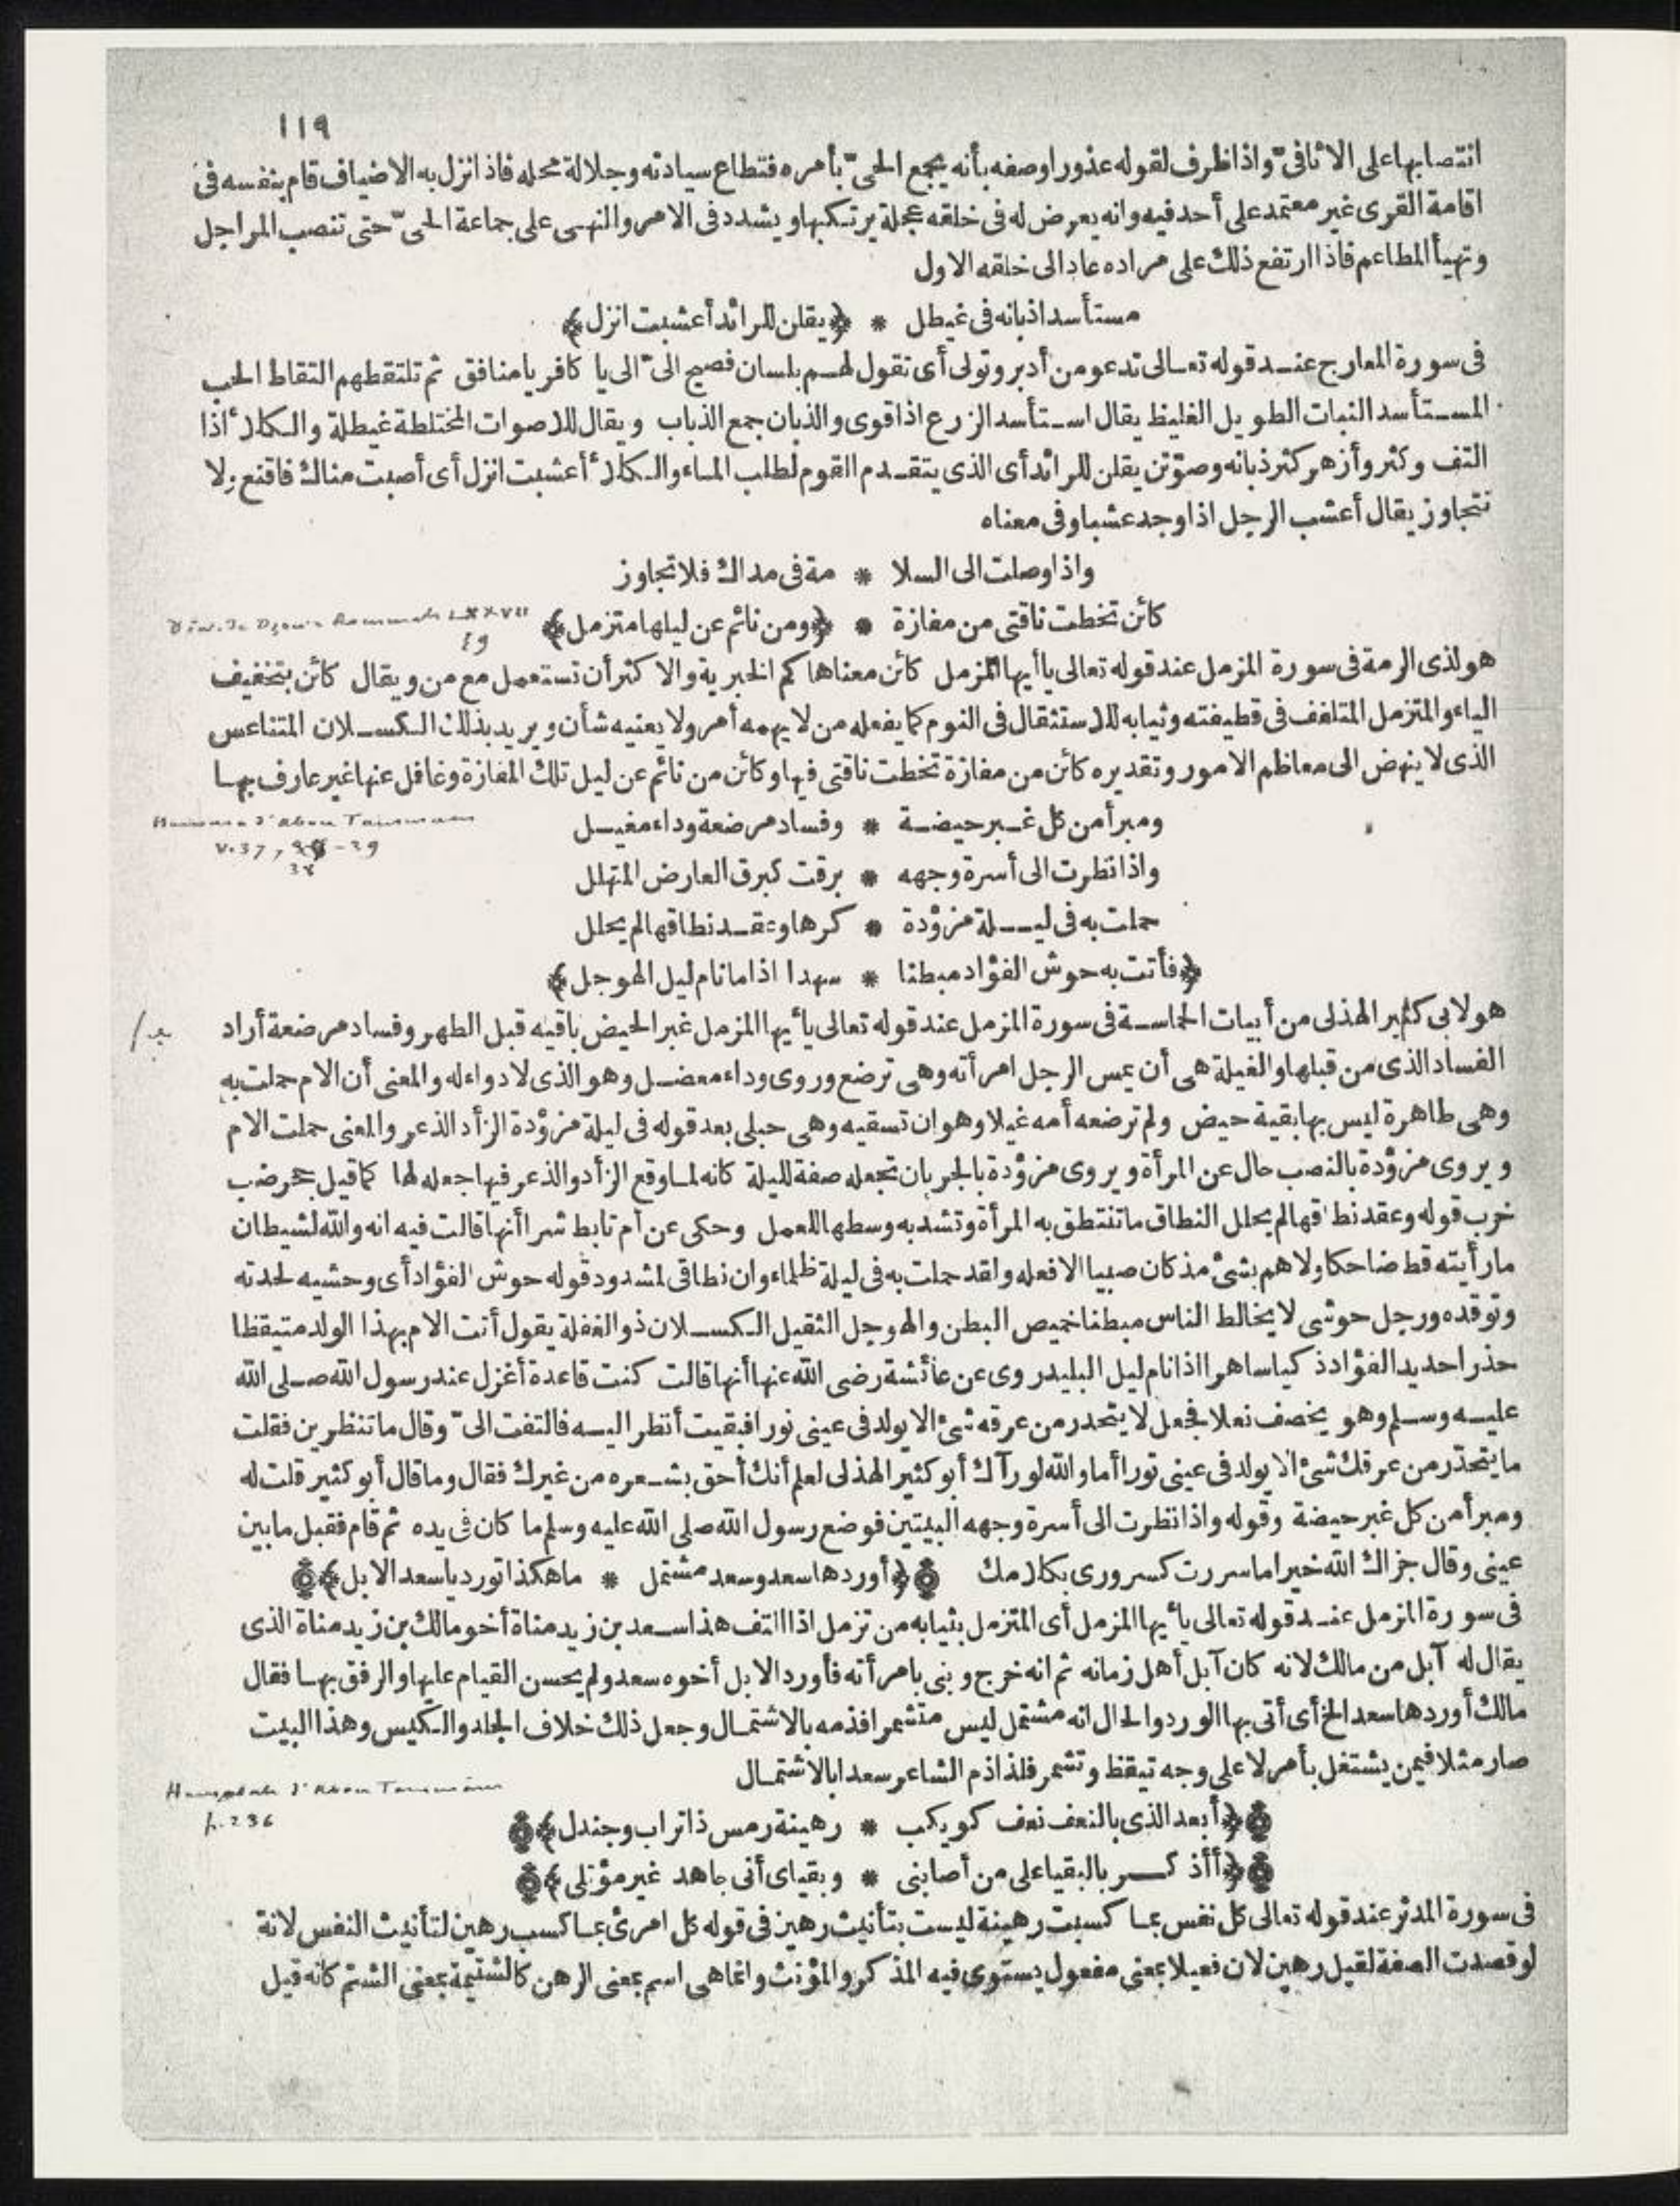 ١١٩
انتصابها على الاثافىّ واذا ظرف لقوله عذورا وصفه بأنه يجمع الحىّ بأمره فتطاع سيادته وجلالة محله فاذا نزل به الاضياف قام بنفسه فى
اقامة القرى غير معتمد على أحد فيه وانه يعرض له فى خلقه عجلة يرتكبها ويشدد فى الامر والنهى على جماعة الحىّ حتى تنصب المراجل
وتهيأ المطاعم فاذا ارتفع ذلك على مراده عاد الى خلقه الاول
مستأسدا ذبانه فى غيطل * ﴿يقلن للرائد أعشبت انزل﴾
فى سورة المعارج عند قوله تعالى تدعو من أدبر وتولى أى تقول لهم بلسان فصيح الىّ الى يا كافر يا منافق ثم تلتقطهم التقاط الحب
المستأسد النبات الطويل الغليظ يقال استأسد الزرع اذا قوى والذبان جمع الذباب ويقال للاصوات المختلطة غيطلة والكلا ٔ اذا
التف وكثر وأزهر كثر ذبانه وصوّتن يقلن للرائد أى الذى يتقدم القوم لطلب الماء والكلا ٔ أعشبت انزل أى أصبت مناك فاقنع ولا
تتجاوز يقال أعشب الرجل اذا وجد عشبا وفى معناه
واذا وصلت الى السلا * مة فى مداك فلا تجاوز
كائن تخطت ناقتى من مفازة * ﴿ومن نائم عن ليلها متزمل﴾
Diw. de Dzou'r Roummah LXXVII
49
هو لذى الرمة فى سورة المزمل عند قوله تعالى يا أيها المزمل كائن معناها كم الخبرية والاكثر أن تستعمل مع من ويقال كائن بتخفيف
الياء والمتزمل المتلفف فى قطيفته وثيابه للاستثقال فى النوم كما يفعله من لا يهمه أمر ولا يعنيه شأن ويريد بذلك الكسلان المتناعس
الذى لا ينهض الى معاظم الامور وتقديره كائن من مفازة تخطت ناقتى فيها وكائن من نائم عن ليل تلك المفازة وغافل عنها غير عارف بها
ومبرأ من كل غبر حيضة * وفساد مرضعة وداء مغيل
Hamasa d'Abou Tammam
V. 37, 39
38
واذا نظرت الى أسرة وجهه * برقت كبرق العارض المتهلل
حملت به فى ليلة مزؤدة * كرها وعقد نطاقها لم يحلل
﴿فأتت به حوش الفؤاد مبطنا * سهدا اذا ما نام ليل الهوجل﴾
هو لابى كثير الهذلى من أبيات الحماسة فى سورة المزمل عند قوله تعالى يا ٔيها المزمل غبر الحيض باقيه قبل الطهر وفساد مرضعة أراد
الفساد الذى من قبلها والغيلة هى أن يمس الرجل امرأته وهى ترضع وروى وداء معضل وهو الذى لا دواء له والمعنى أن الام حملت به
وهى طاهرة ليس بها بقية حيض ولم ترضعه أمه غيلا وهو ان تسقيه وهى حبلى بعد قوله فى ليلة مزؤدة الزأد الذعر والمعنى حملت الام
ويروى مزؤدة بالنصب حال عن المرأة ويروى مزؤدة بالجر بان تجعله صفة لليلة كانه لما وقع الزأد والذعر فيها جعله لها كما قيل جحر ضب
خرب قوله وعقد نطاقها لم يحلل النطاق ما تنتطق به المرأة وتشد به وسطها للعمل وحكى عن أم تابط شرا أنها قالت فيه انه والله لشيطان
ما رأيته قط ضاحكا ولا هم بشئ مذ كان صبيا الا فعله ولقد حملت به فى ليلة ظلماء وان نطاقى لمشدود قوله حوش الفؤاد أى وحشيه لحدته
وتوقده ورجل حوشى لا يخالط الناس مبطنا خميص البطن والهوجل الثقيل الكسلان ذو الغفلة يقول أتت الام بهذا الولد متيقظا
حذرا حديد الفؤاد ذكيا ساهرا اذا نام ليل البليد روى عن عائشة رضى الله عنها أنها قالت كنت قاعدة أغزل عند رسول الله صلى الله
عليه وسلم وهو يخصف نعلا فجعل لا يتحدر من عرقه شئ الا يولد فى عينى نورا فبقيت أنظر اليه فالتفت الىّ وقال ما تنظرين فقلت
ما يتحدّر من عرقك شئ الا يولد فى عينى نورا أما والله لو رآك أبو كثير الهذلى لعلم أنك أحق بشعره من غيرك فقال وما قال أبو كثير قلت له
ومبرأ من كل غبر حيضة وقوله واذا نظرت الى أسرة وجهه البيتين فوضع رسول الله صلى الله عليه وسلم ما كان فى يده ثم قام فقبل ما بين
عينى وقال جزاك الله خيرا ما سررت كسرورى بكلامك ﴿أوردها سعد وسعد مشتمل * ما هكذا تورد يا سعد الابل﴾
فى سورة المزمل عند قوله تعالى يا ٔيها المزمل أى المتزمل بثيابه من تزمل اذا التف هذا سعد بن زيد مناة أخو مالك بن زيد مناة الذى
يقال له آبل من مالك لانه كان آبل أهل زمانه ثم انه خرج وبنى بامرأته فأورد الابل أخوه سعد ولم يحسن القيام عليها والرفق بها فقال
مالك أوردها سعد الخ أى أتى بها الورد والحال انه مشتمل ليس متشمرا فذمه بالاشتمال وجعل ذلك خلاف الجلد والكيس وهذا البيت
صار مثلا فيمن يشتغل بأمر لا على وجه تيقظ وتشمر فلذا ذم الشاعر سعدا بالاشتمال
Hamasah d'Abou Tammâm
p. 236
﴿أبعد الذى بالنعف نعف كويكب * رهينة رمس ذا تراب وجندل﴾
﴿أأذكر بالبقيا على من أصابنى * وبقياى أنى جاهد غير مؤتلى﴾
فى سورة المدثر عند قوله تعالى كل نفس بما كسبت رهينة ليست بتأنيث رهين فى قوله كل امرئ بما كسب رهين لتأنيث النفس لانه
لو قصدت الصفة لقيل رهين لان فعيلا بمعنى مفعول يستوى فيه المذكر والمؤنث وانما هى اسم بمعنى الرهن كالشتيمة بمعنى الشتم كانه قيل